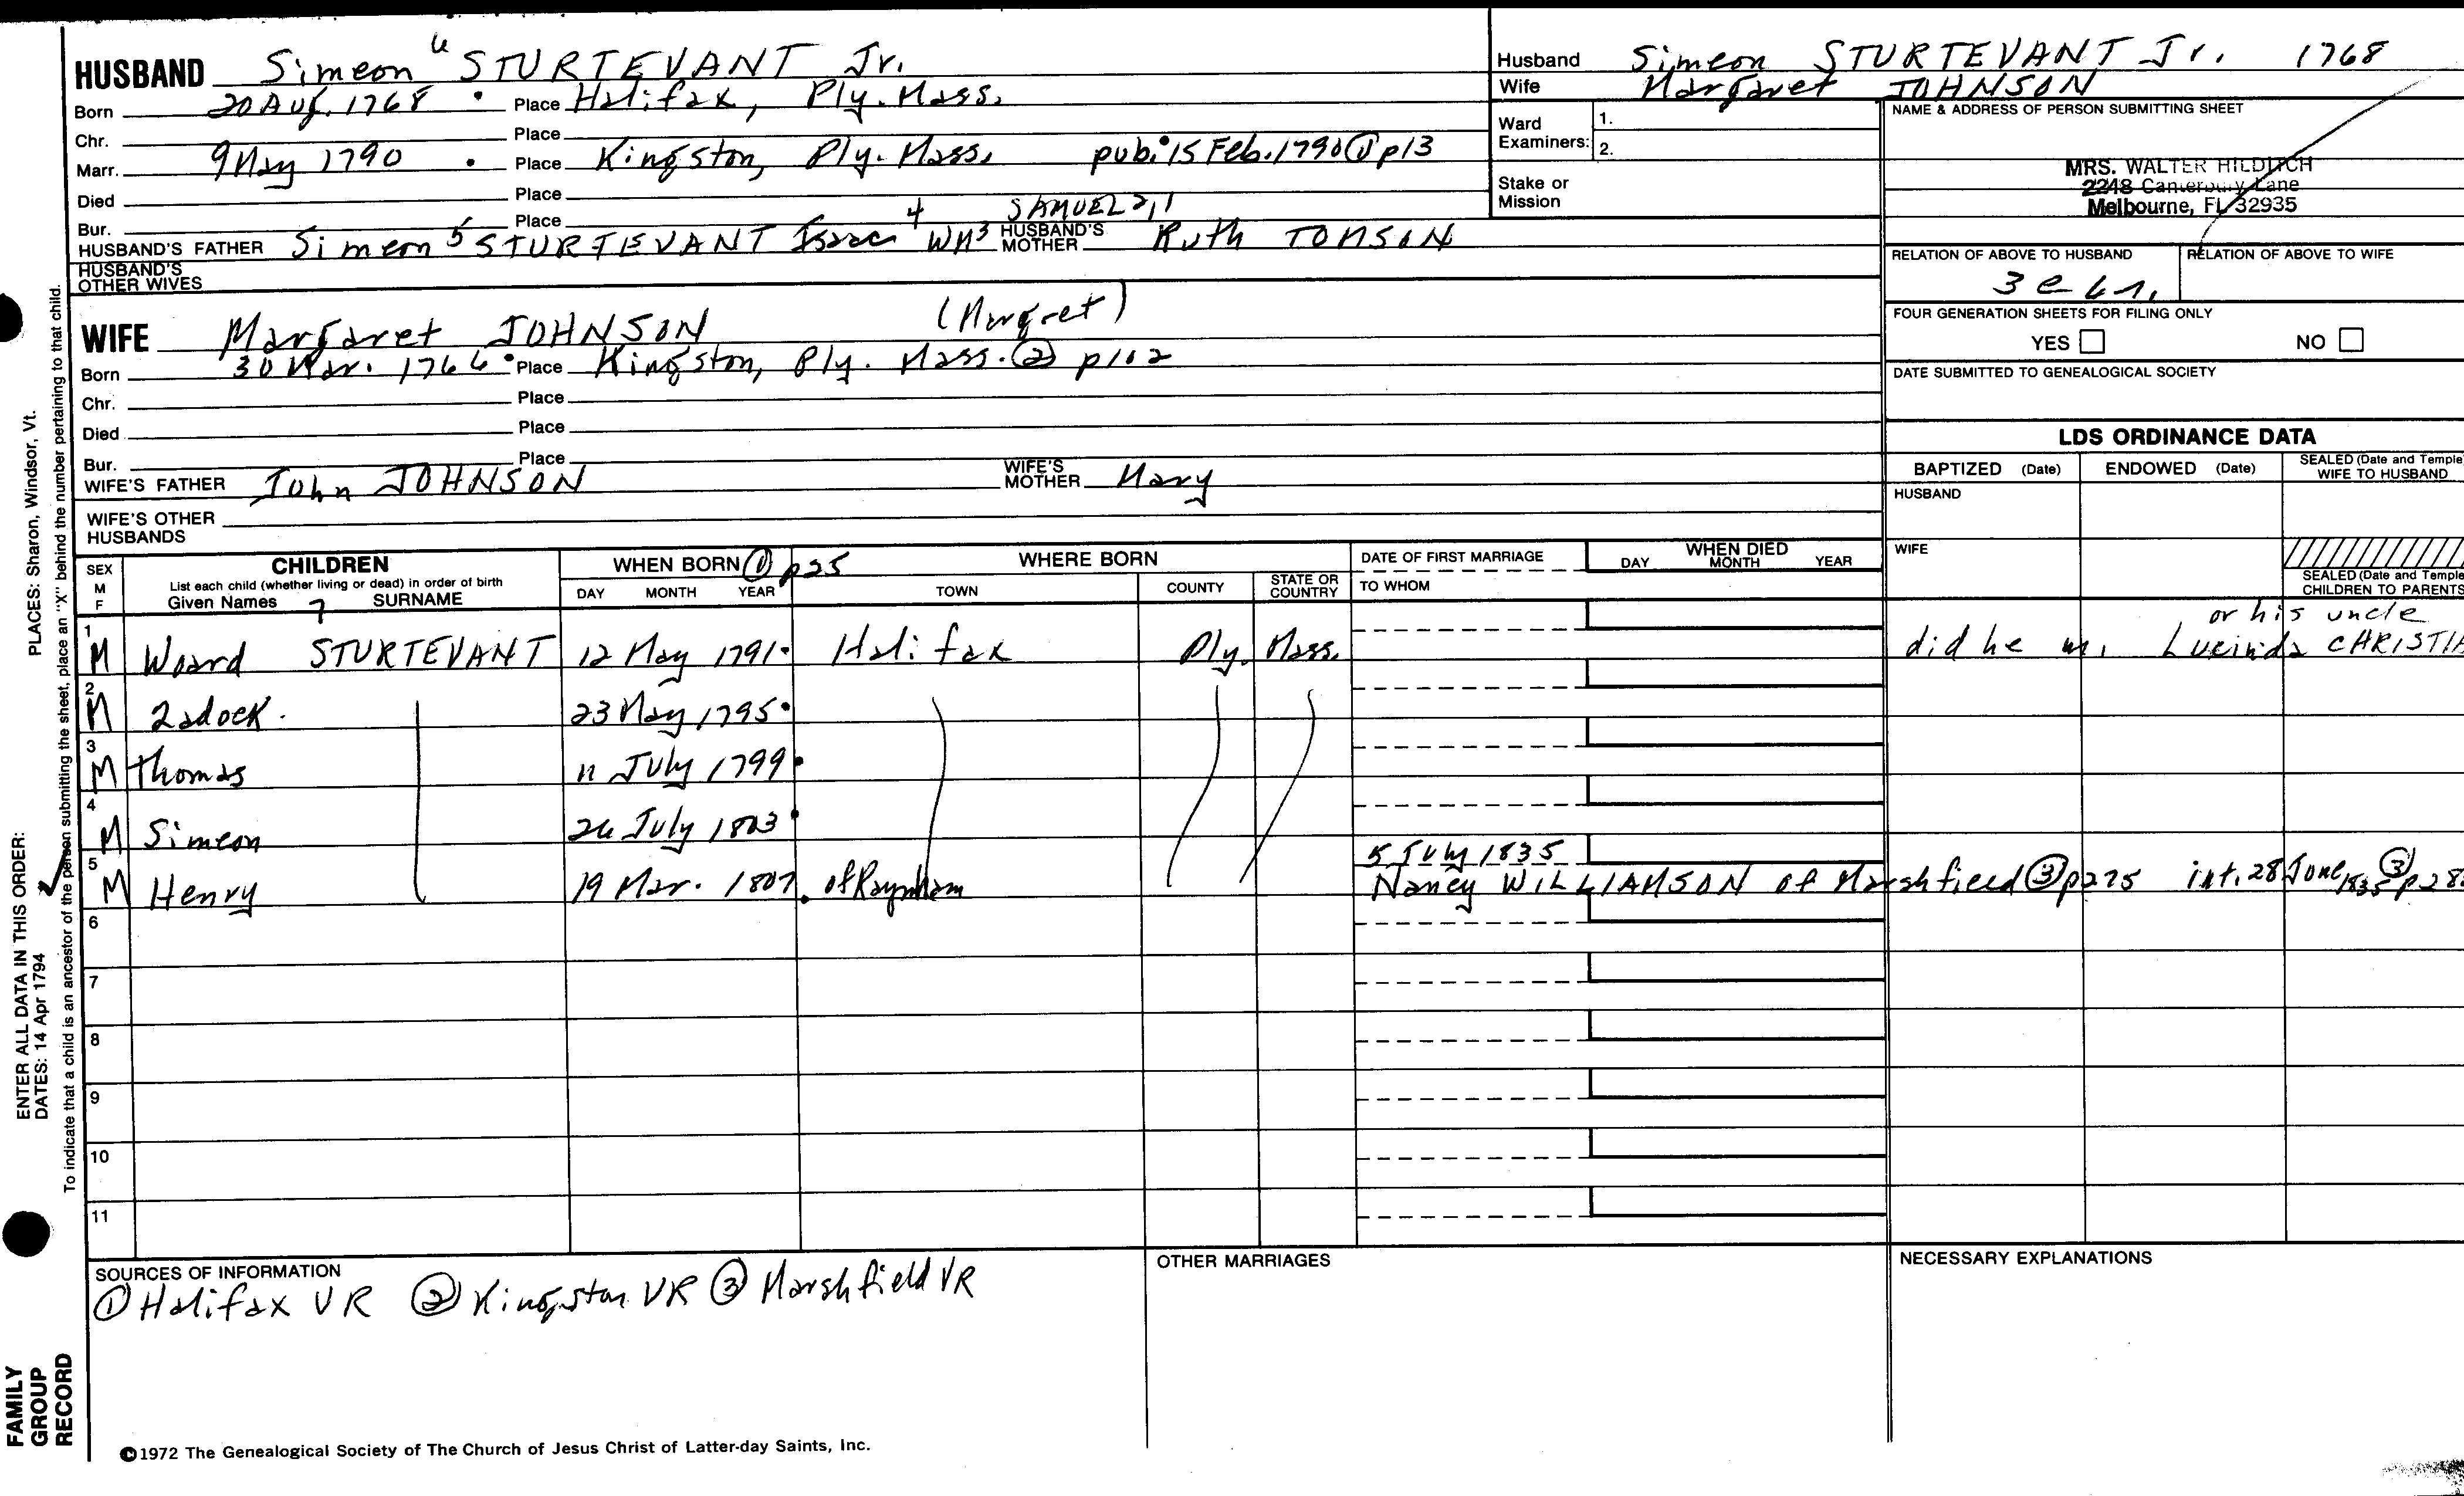 HUSBAND Simeon 6 STURTEVANT Jr.
Born 20 Aug. 1768 Place Halifax, Ply. Mass.
Chr. Place
Marr. 9 May 1790 Place Kingston, Ply. Mass. pub. 15 Feb. 1790 ① p13
Died Place
Bur. Place 4 SAMUEL 2,1
HUSBAND'S FATHER Simeon 5 STURTEVANT Isaac Wm 3 HUSBAND'S MOTHER Ruth TOMSON
HUSBAND'S OTHER WIVES
WIFE Margaret JOHNSON (Margret)
Born 30 Mar. 1766 Place Kingston, Ply. Mass. ② p102
Chr. Place
Died Place
Bur. Place
WIFE'S FATHER John JOHNSON WIFE'S MOTHER Mary
WIFE'S OTHER HUSBANDS
Husband Simeon STURTEVANT Jr. 1768
Wife Margaret JOHNSON
Ward Examiners: 1.
2.
Stake or Mission
NAME & ADDRESS OF PERSON SUBMITTING SHEET
MRS. WALTER HILDITCH
2248 Canterbury Lane
Melbourne, FL 32935
RELATION OF ABOVE TO HUSBAND RELATION OF ABOVE TO WIFE
FOUR GENERATION SHEETS FOR FILING ONLY
YES NO
DATE SUBMITTED TO GENEALOGICAL SOCIETY
LDS ORDINANCE DATA
BAPTIZED (Date) ENDOWED (Date) SEALED (Date and Temple WIFE TO HUSBAND
HUSBAND
WIFE
SEALED (Date and Temple CHILDREN TO PARENTS
SEX M F CHILDREN List each child (whether living or dead) in order of birth Given Names 7 SURNAME
WHEN BORN ① p25 DAY MONTH YEAR
WHERE BORN TOWN COUNTY STATE OR COUNTRY
DATE OF FIRST MARRIAGE TO WHOM
WHEN DIED DAY MONTH YEAR
or his uncle
1 M Ward STURTEVANT 12 May 1791 Halifax Ply. Mass. did he m. Lucinda CHRISTIA
2 M Zadock 23 May 1795
3 M Thomas 11 July 1799
4 M Simeon 26 July 1803
5 July 1835
5 M Henry 19 Mar. 1807 of Raynham Nancy WILLIAMSON of Marshfield ③ p275 int. 28 June 1835 ③ p28
6
7
8
9
10
11
SOURCES OF INFORMATION
① Halifax VR ② Kingston VR ③ Marshfield VR
OTHER MARRIAGES
NECESSARY EXPLANATIONS
©1972 The Genealogical Society of The Church of Jesus Christ of Latter-day Saints, Inc.
FAMILY GROUP RECORD
ENTER ALL DATA IN THIS ORDER:
DATES: 14 Apr 1794
PLACES: Sharon, Windsor, Vt.
To indicate that a child is an ancestor of the person submitting the sheet, place an "X" behind the number pertaining to that child.